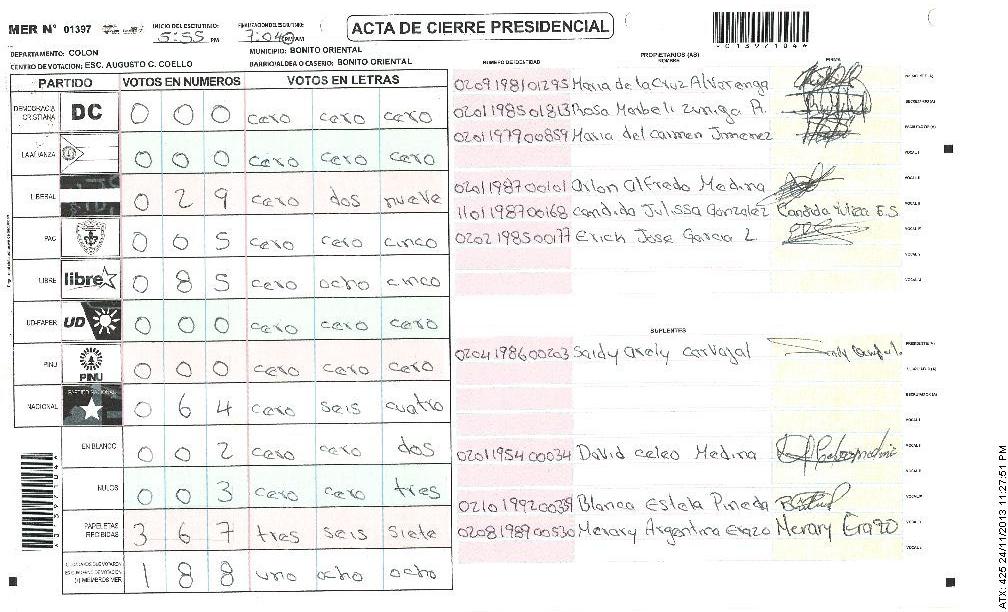 MER N° 01397
INICIO DEL ESCRUTINIO: 5:55 PM
FINALIZACION DEL ESCRUTINIO: 7:04 PM AM
ACTA DE CIERRE PRESIDENCIAL
DEPARTAMENTO: COLON
MUNICIPIO: BONITO ORIENTAL
CENTRO DE VOTACION: ESC. AUGUSTO C. COELLO
BARRIO/ALDEA O CASERIO: BONITO ORIENTAL
PARTIDO VOTOS EN NUMEROS VOTOS EN LETRAS
DEMOCRACIA CRISTIANA DC 0 0 0 cero cero cero
LA ALIANZA 0 0 0 cero cero cero
LIBERAL 0 2 9 cero dos nueve
PAC 0 0 5 cero cero cinco
LIBRE libre 0 8 5 cero ocho cinco
UD-FAPER UD 0 0 0 cero cero cero
PINU PINU 0 0 0 cero cero cero
NACIONAL PARTIDO NACIONAL 0 6 4 cero seis cuatro
EN BLANCO 0 0 2 cero cero dos
NULOS 0 0 3 cero cero tres
PAPELETAS RECIBIDAS 3 6 7 tres seis siete
1 8 8 uno ocho ocho
PROPIETARIOS (AS)
NUMERO DE IDENTIDAD NOMBRE FIRMA
0209198101295 Maria de la Cruz Alvarenga
0201198501813 Rosa Maribeli Zuniga R.
0201197900859 Maria del Carmen Jimenez
0201198700101 Arlon Alfredo Medina
1101198700168 Candida Julissa Gonzalez
0202198500177 Erick Jose Garcia L
SUPLENTES
0204198600203 Saidy Arely Carvajal
0201195400034 David Celeo Medina
0210199200339 Blanca Estela Pineda
0208198900530 Merary Argentina Erazo Merary Erazo
ATX: 425 24/11/2013 11:27:51 PM